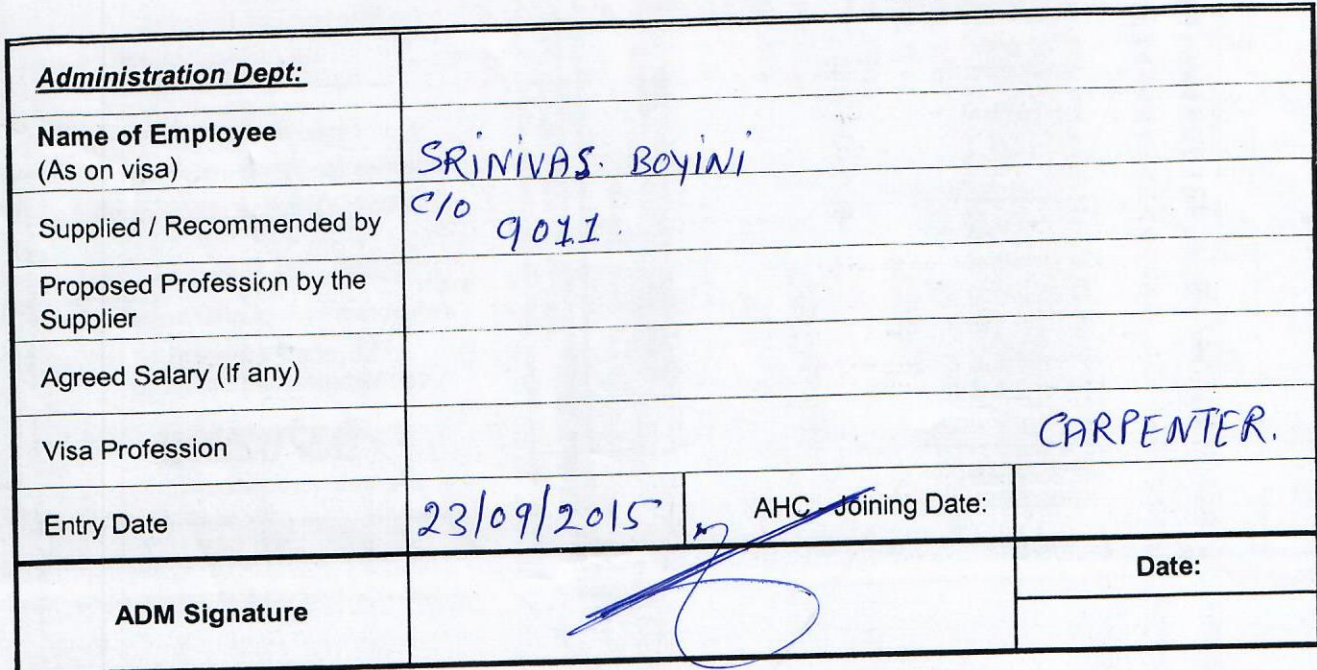 Administration Dept:
Name of Employee
(As on visa)
SRINIVAS. BOYINI
Supplied / Recommended by
C/o
9011.
Proposed Profession by the
Supplier
Agreed Salary (If any)
Visa Profession
CARPENTER.
Entry Date
23/09/2015
AHC - Joining Date:
ADM Signature
Date: